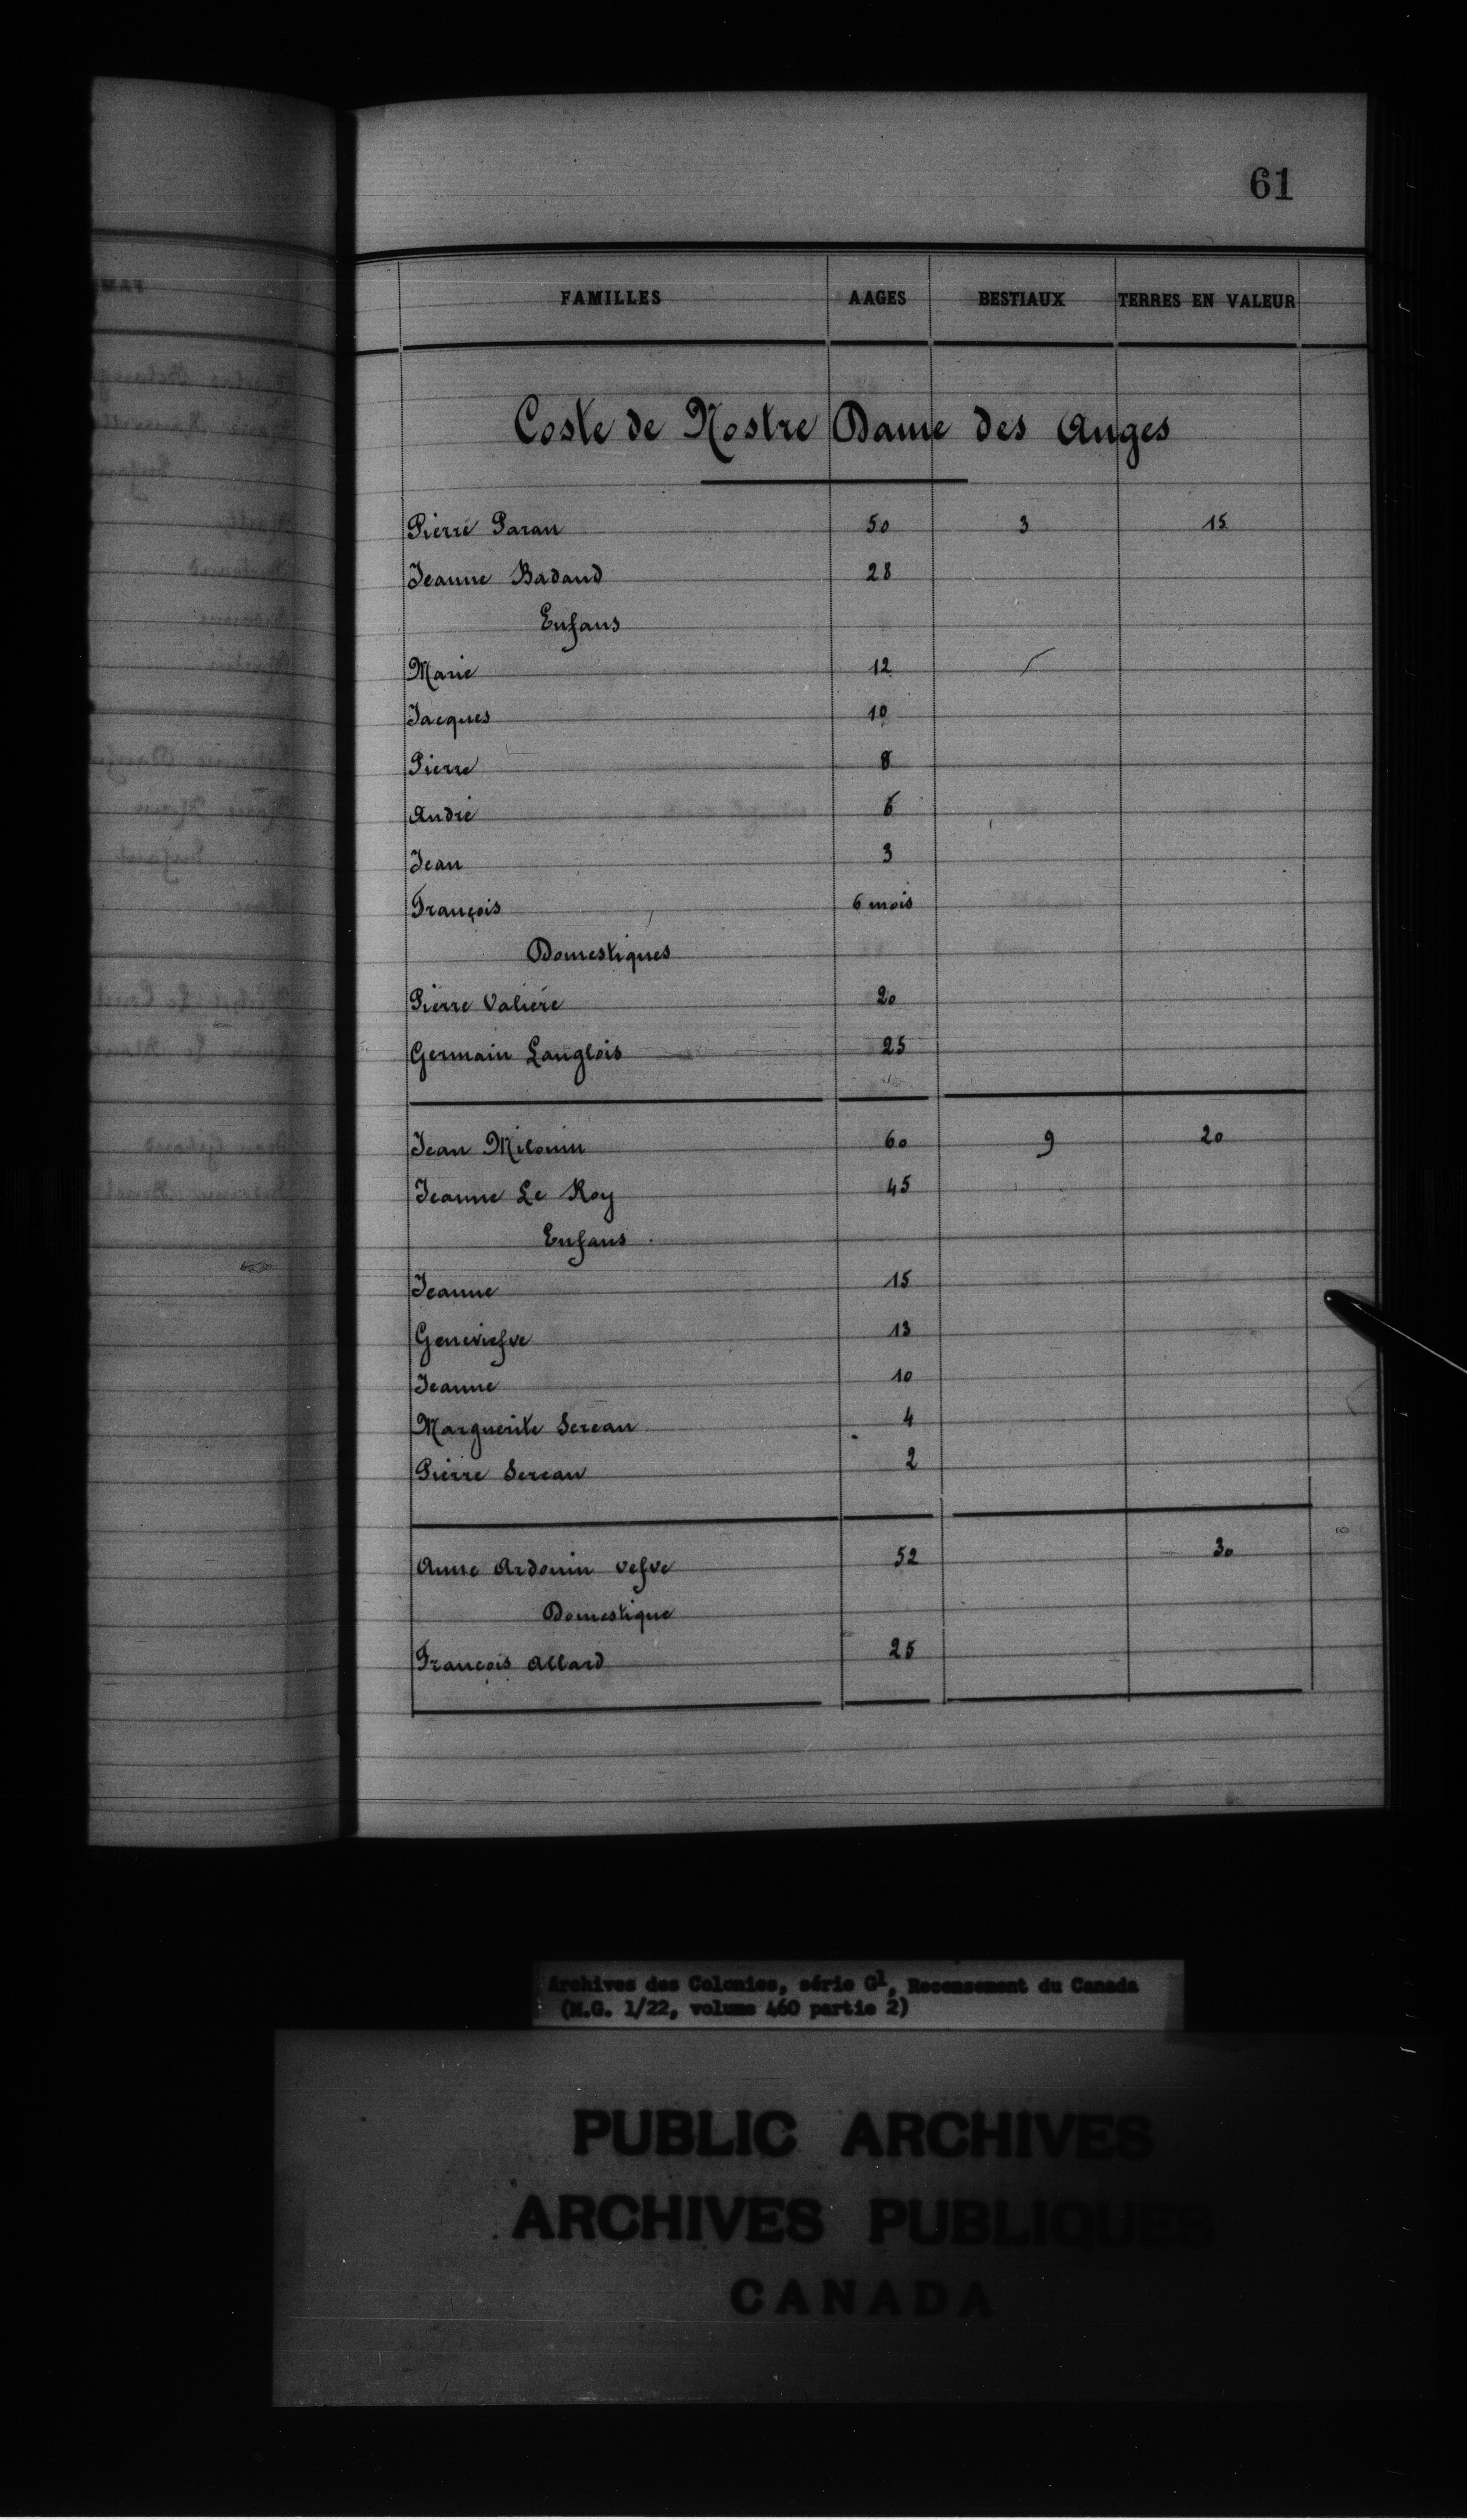 61
FAMILLES AAGES BESTIAUX TERRES EN VALEUR
Coste de Nostre Dame des Anges
Pierre Paran 50 3 15
Jeanne Badaud 28
Enfans
Marie 12
Jacques 10
Pierre 8
André 6
Jean 3
François 6 mois
Domestiques
Pierre Valiere 20
Germain Langlois 25
Jean Milouin 60 9 20
Jeanne Le Roy 45
Enfans
Jeanne 15
Geneviefve 13
Jeanne 10
Marguerite Sereau 4
Pierre Sereau 2
Anne Ardouin vefve 52 30
Domestique
François Allard 25
Archives des Colonies, série G1, Recensement du Canada
(M.G. 1/22, volume 460 partie 2)
PUBLIC ARCHIVES
ARCHIVES PUBLIQUES
CANADA